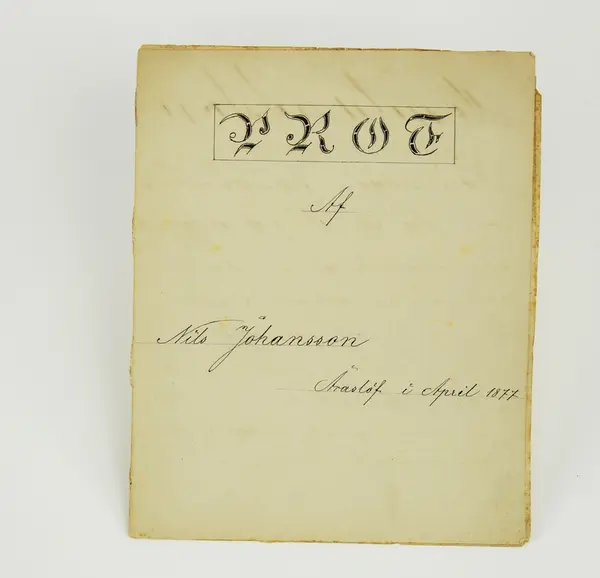 PROF
Af
Nils Johansson
Araslöf i April 1877